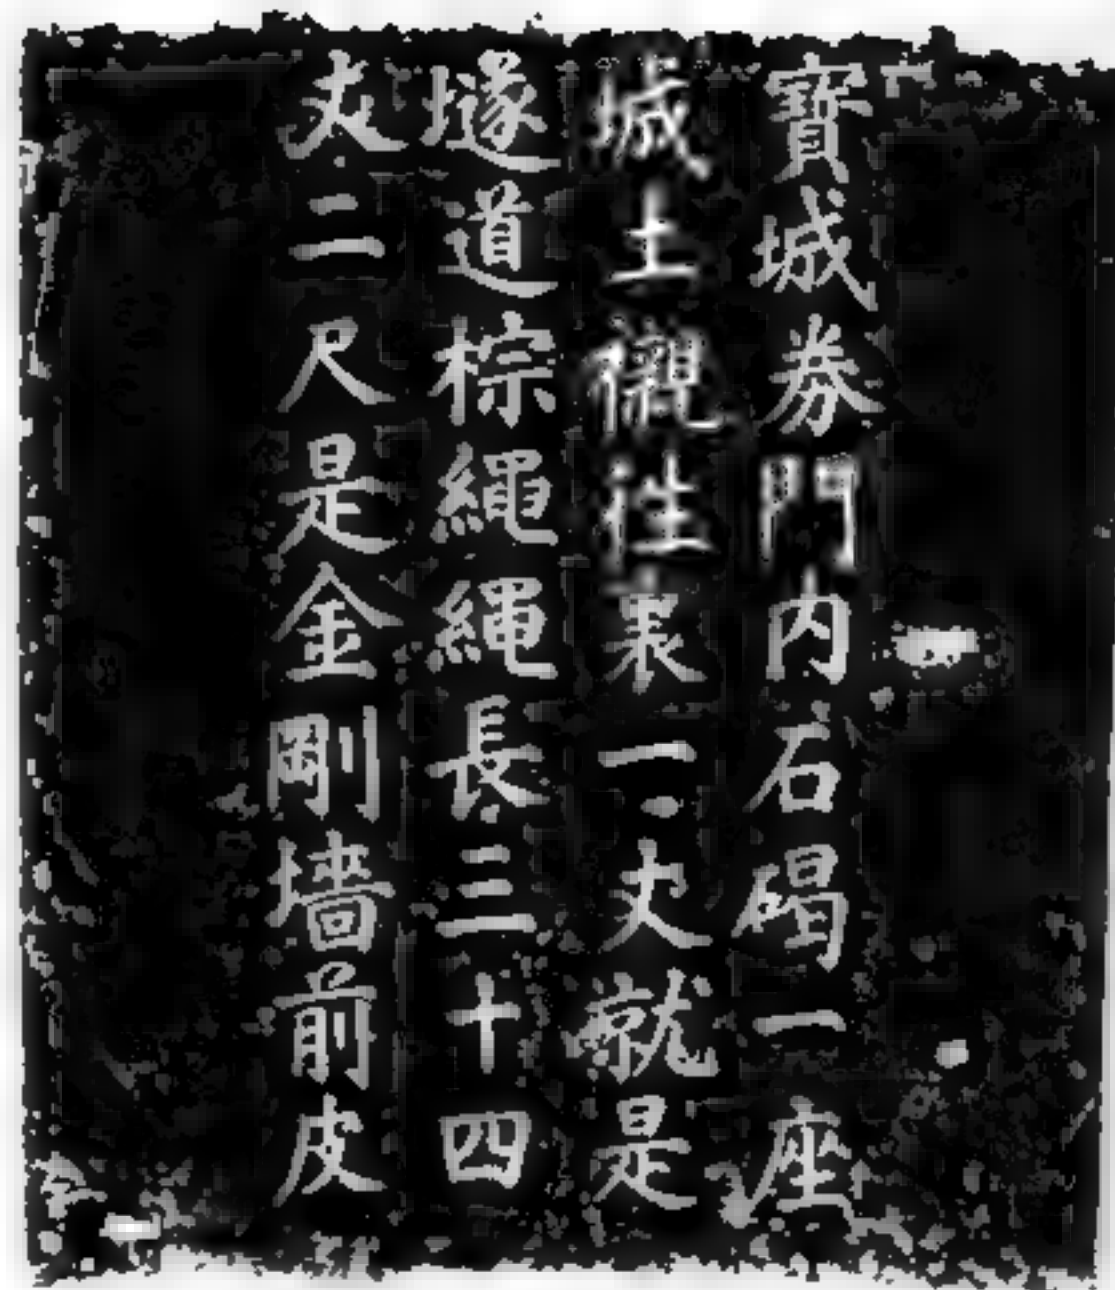 寶城券門内石碣一座
城土襯往裏一丈就是
隧道棕繩繩長三十四
丈二尺是金剛墻前皮